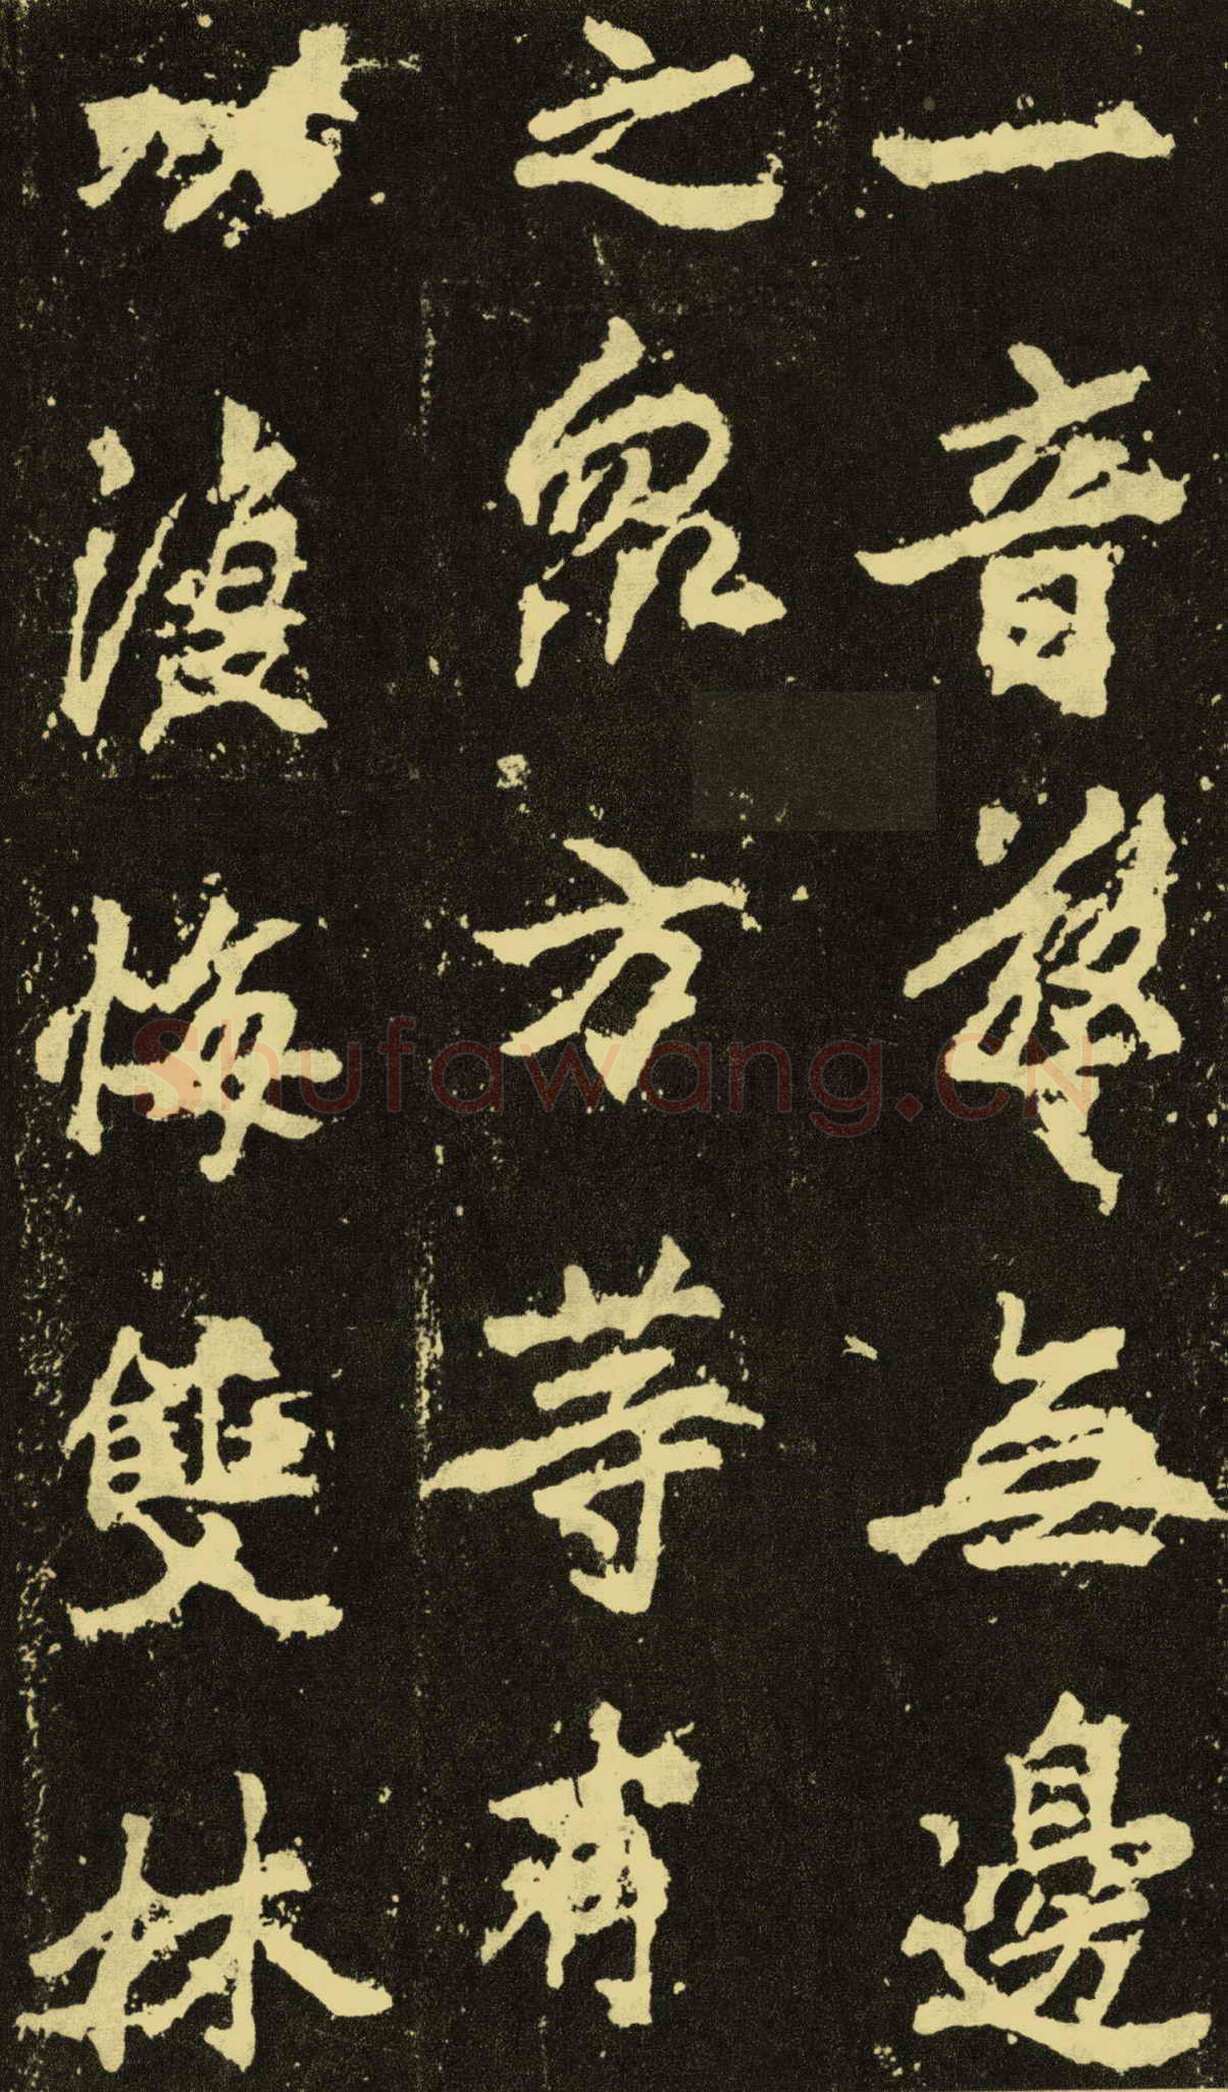 一音無邊
之眾方等甫
功復悔雙林
Shufawang.CN